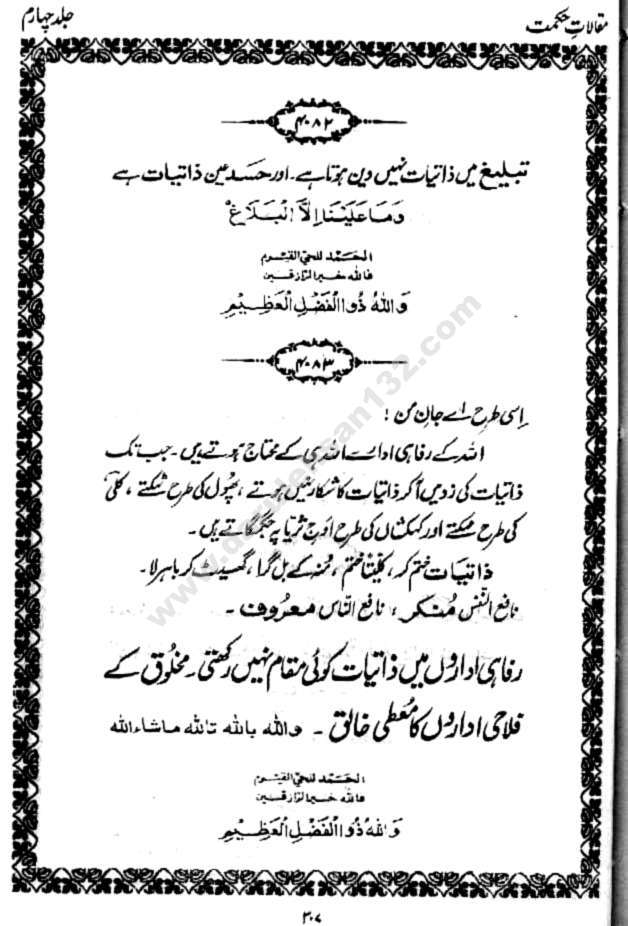 مقالاتِ حکمت
جلد چہارم
۴۰۸۲
تبلیغ میں ذاتیات نہیں دین ہوتا ہے ۔ اور حسد عین ذاتیات ہے
وَمَا عَلَيْنَا اِلَّا الْبَلَاغُ
الحَمد للحيّ القيّوم
فالله خير الرّازقين
وَاللهُ ذُو الْفَضْلِ الْعَظِيْمِ
۴۰۸۳
اِسی طرح اے جانِ من !
اللہ کے رفاہی ادارے اللہ ہی کے محتاج ہوتے ہیں ۔ جب تک
ذاتیات کی زد میں آکر ذاتیات کا شکار نہیں ہوتے ، پھُول کی طرح مہکتے ، کلی
کی طرح چمکتے اور کہکشاں کی طرح اوجِ ثریا پہ جگمگاتے ہیں ۔
ذاتیات ختم کر ، کلیتاً ختم ، مُنہ کے بل گرا ، گھسیٹ کر باہر لا ۔
نافع النّفس مُنکر ، نافع النّاس معروف ۔
رفاہی اداروں میں ذاتیات کوئی مقام نہیں رکھتی ۔ مخلُوق کے
فلاحی اداروں کا مُعطی خالق ۔ والله بالله تالله ماشاءالله
الحَمد للحيّ القيّوم
فالله خير الرّازقين
وَاللهُ ذُو الْفَضْلِ الْعَظِيْمِ
۳۰۷